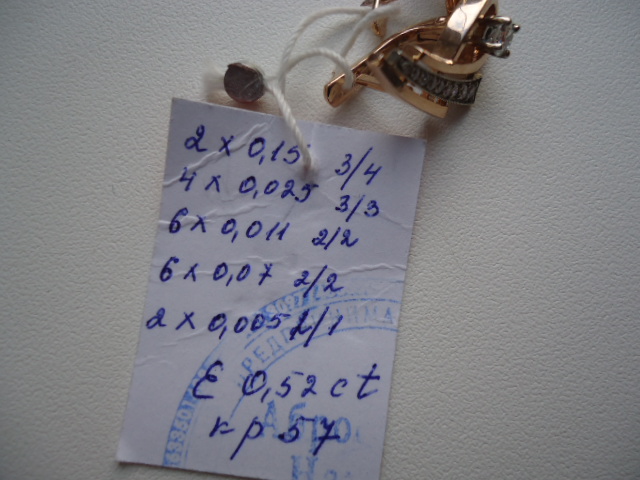 2 x 0,15 3/4
4 x 0,025 3/3
6 x 0,011 2/2
6 x 0,07 2/2
2 x 0,005 1/1
Є 0,52 ct
кр 57